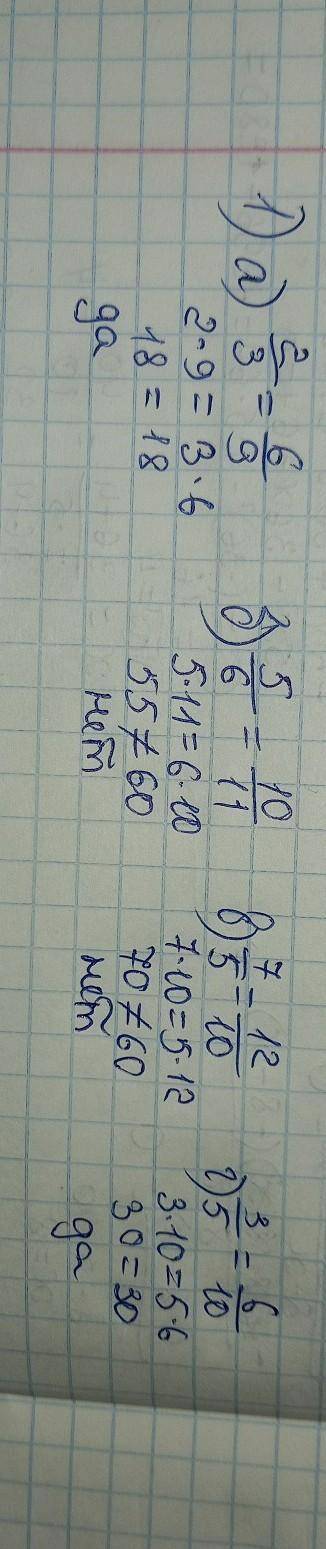 1) а) 2/3 = 6/9
2·9 = 3·6
18 = 18
да
б) 5/6 = 10/11
5·11 = 6·10
55 ≠ 60
нет
в) 7/5 = 12/10
7·10 = 5·12
70 ≠ 60
нет
г) 3/5 = 6/10
3·10 = 5·6
30 = 30
да